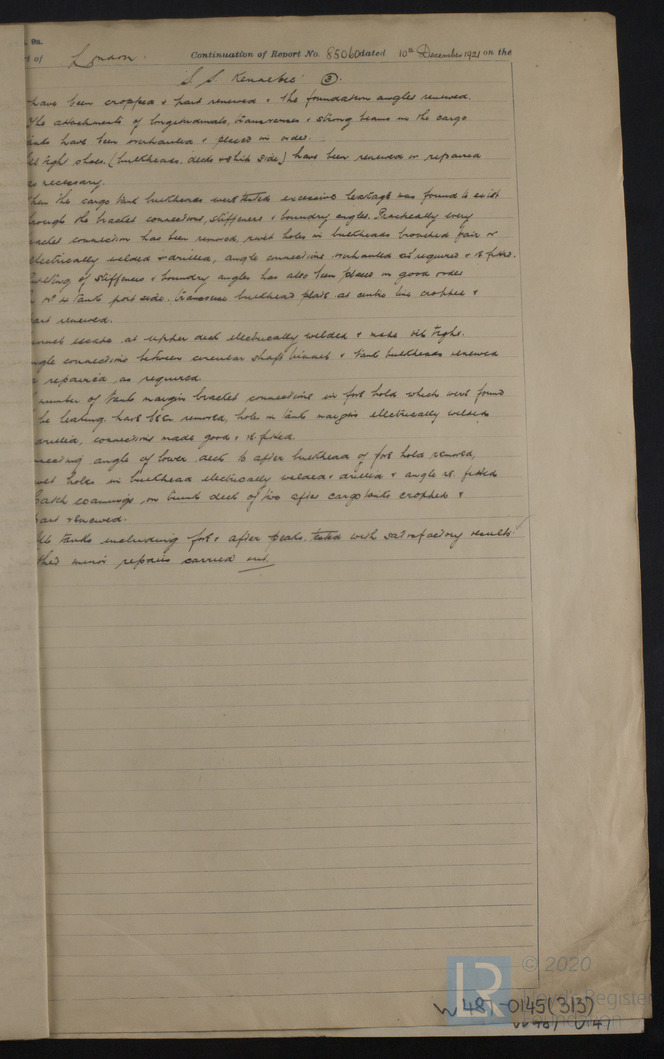 9a.
of London. Continuation of Report No. 85060 dated 10th December 1921 on the
S. S. Kennebec ③.
have been cropped & part renewed & the foundation angles renewed.
The attachments of longitudinals, transverses & strong beams in the cargo
tanks have been overhauled & placed in order.
oil tight shoes (bulkheads, decks & ship side) have been renewed or repaired
as necessary.
When the cargo tank bulkheads were tested excessive leakage was found to exist
through the bracket connections, stiffeners & boundry angles. Practically every
bracket connection has been removed, rivet holes in bulkheads broached fair or
electrically welded & drilled, angle connections overhauled as required & refitted.
Riveting of stiffeners & boundry angles has also been placed in good order
No 4 tank port side. transverse bulkhead plate at centre line cropped &
part renewed.
tunnel escape at upper deck electrically welded & made oil tight.
angle connections between circular shaft tunnel & tank bulkheads renewed
or repaired as required.
number of tank margin bracket connections in fore hold which were found
be leaking have been removed, holes in tank margin electrically welded
drilled, connections made good & refitted.
connecting angle of lower deck to after bulkhead of fore hold removed,
rivet holes in bulkhead electrically welded & drilled & angle refitted
hatch coamings on trunk deck of two after cargo tanks cropped &
part renewed.
All tanks including fore & after peaks, tested with satisfactory results.
Other minor repairs carried out.
© 2020
LR
Lloyd's Register
Foundation
W481-0145(3/3)